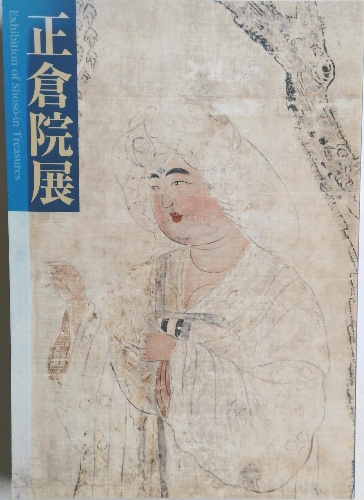 正倉院展
Exhibition of Shoso-in Treasures